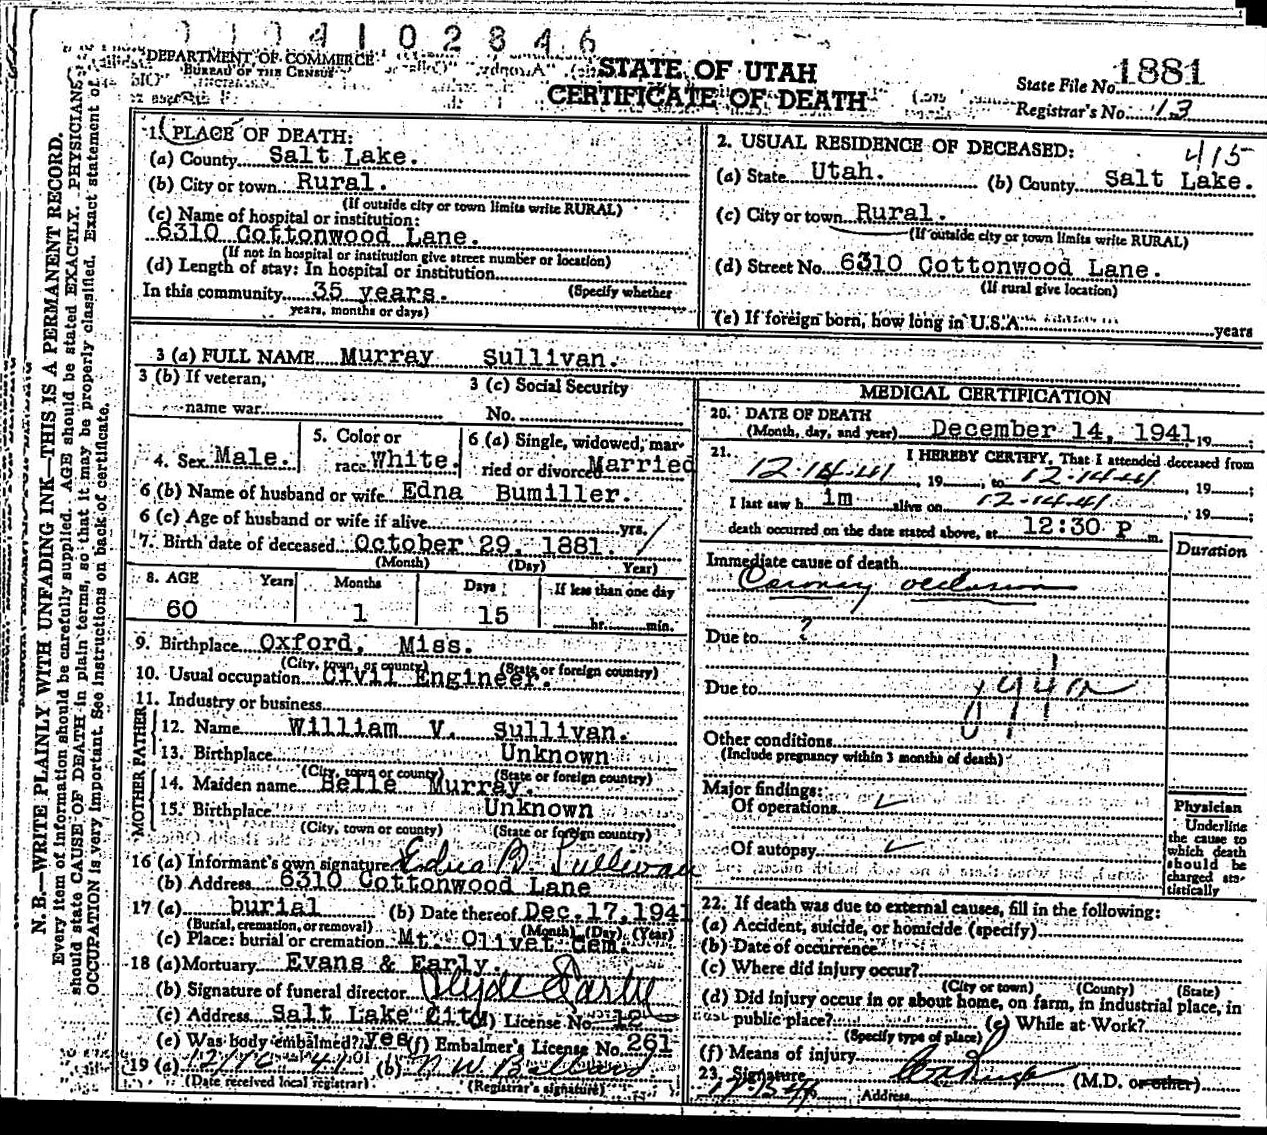 1 0 4 1 0 2 8 4 6
DEPARTMENT OF COMMERCE
BUREAU OF THE CENSUS
STATE OF UTAH
CERTIFICATE OF DEATH
State File No. 1881
Registrar's No. 13
N. B.—WRITE PLAINLY WITH UNFADING INK—THIS IS A PERMANENT RECORD.
Every item of information should be carefully supplied. AGE should be stated EXACTLY. PHYSICIANS
should state CAUSE OF DEATH in plain terms, so that it may be properly classified. Exact statement of
OCCUPATION is very important. See instructions on back of certificate.
1. PLACE OF DEATH:
(a) County Salt Lake.
(b) City or town Rural.
(If outside city or town limits write RURAL)
(c) Name of hospital or institution:
6310 Cottonwood Lane.
(If not in hospital or institution give street number or location)
(d) Length of stay: In hospital or institution
In this community 35 years. (Specify whether
years, months or days)
2. USUAL RESIDENCE OF DECEASED: 415
(a) State Utah. (b) County Salt Lake.
(c) City or town Rural.
(If outside city or town limits write RURAL)
(d) Street No. 6310 Cottonwood Lane.
(If rural give location)
(e) If foreign born, how long in U.S.A. years
3 (a) FULL NAME Murray Sullivan.
3 (b) If veteran,
name war
3 (c) Social Security
No.
4. Sex Male.
5. Color or
race White.
6 (a) Single, widowed, mar-
ried or divorced Married
6 (b) Name of husband or wife Edna Bumiller.
6 (c) Age of husband or wife if alive yrs.
7. Birth date of deceased October 29, 1881.
(Month) (Day) Year)
8. AGE Years Months Days If less than one day
60 1 15 hr. min.
9. Birthplace Oxford, Miss.
(City, town, or county) (State or foreign country)
10. Usual occupation Civil Engineer.
11. Industry or business
FATHER
12. Name William V. Sullivan.
13. Birthplace Unknown
(City, town or county) (State or foreign country)
MOTHER
14. Maiden name Belle Murray.
15. Birthplace Unknown
(City, town or county) (State or foreign country)
16 (a) Informant's own signature Edna B. Sullivan
(b) Address 6310 Cottonwood Lane
17 (a) burial (b) Date thereof Dec.17,1941
(Burial, cremation, or removal) (Month) (Day) (Year)
(c) Place: burial or cremation Mt. Olivet Cem.
18 (a) Mortuary Evans & Early.
(b) Signature of funeral director Clyde Early
(c) Address Salt Lake City (d) License No. 12
(e) Was body embalmed? yes (f) Embalmer's License No. 261
19 (a) 12/16 41 (b) N. W.
(Date received local registrar) (Registrar's signature)
MEDICAL CERTIFICATION
20. DATE OF DEATH
(Month, day, and year) December 14, 1941 19 ;
21. I HEREBY CERTIFY, That I attended deceased from
12-14-41, 19 , to 12-14-41, 19 ;
I last saw h im alive on 12-14-41, 19 ;
death occurred on the date stated above, at 12:30 P m.
Duration
Immediate cause of death
Coronary occlusion
Due to ?
Due to
Other conditions
(Include pregnancy within 3 months of death)
Major findings:
Of operations
Of autopsy
Physician
Underline
the cause to
which death
should be
charged sta-
tistically
22. If death was due to external causes, fill in the following:
(a) Accident, suicide, or homicide (specify)
(b) Date of occurrence
(c) Where did injury occur?
(City or town) (County) (State)
(d) Did injury occur in or about home, on farm, in industrial place, in
public place? (e) While at Work?
(Specify type of place)
(f) Means of injury
23. Signature (M.D. or other)
Address